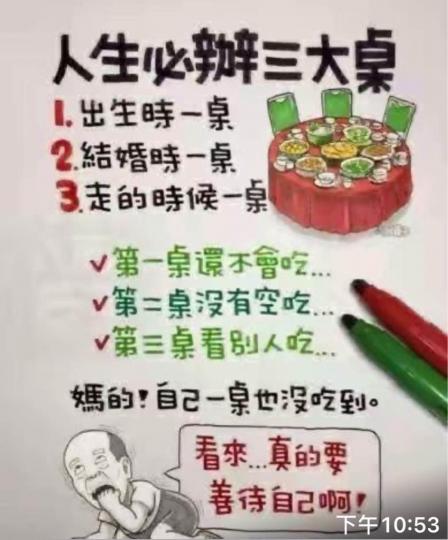 人生必辦三大桌
1.出生時一桌
2.結婚時一桌
3.走的時候一桌
✓第一桌還不會吃...
✓第二桌沒有空吃...
✓第三桌看別人吃...
媽的!自己一桌也沒吃到。
看來...真的要
善待自己啊!
下午10:53